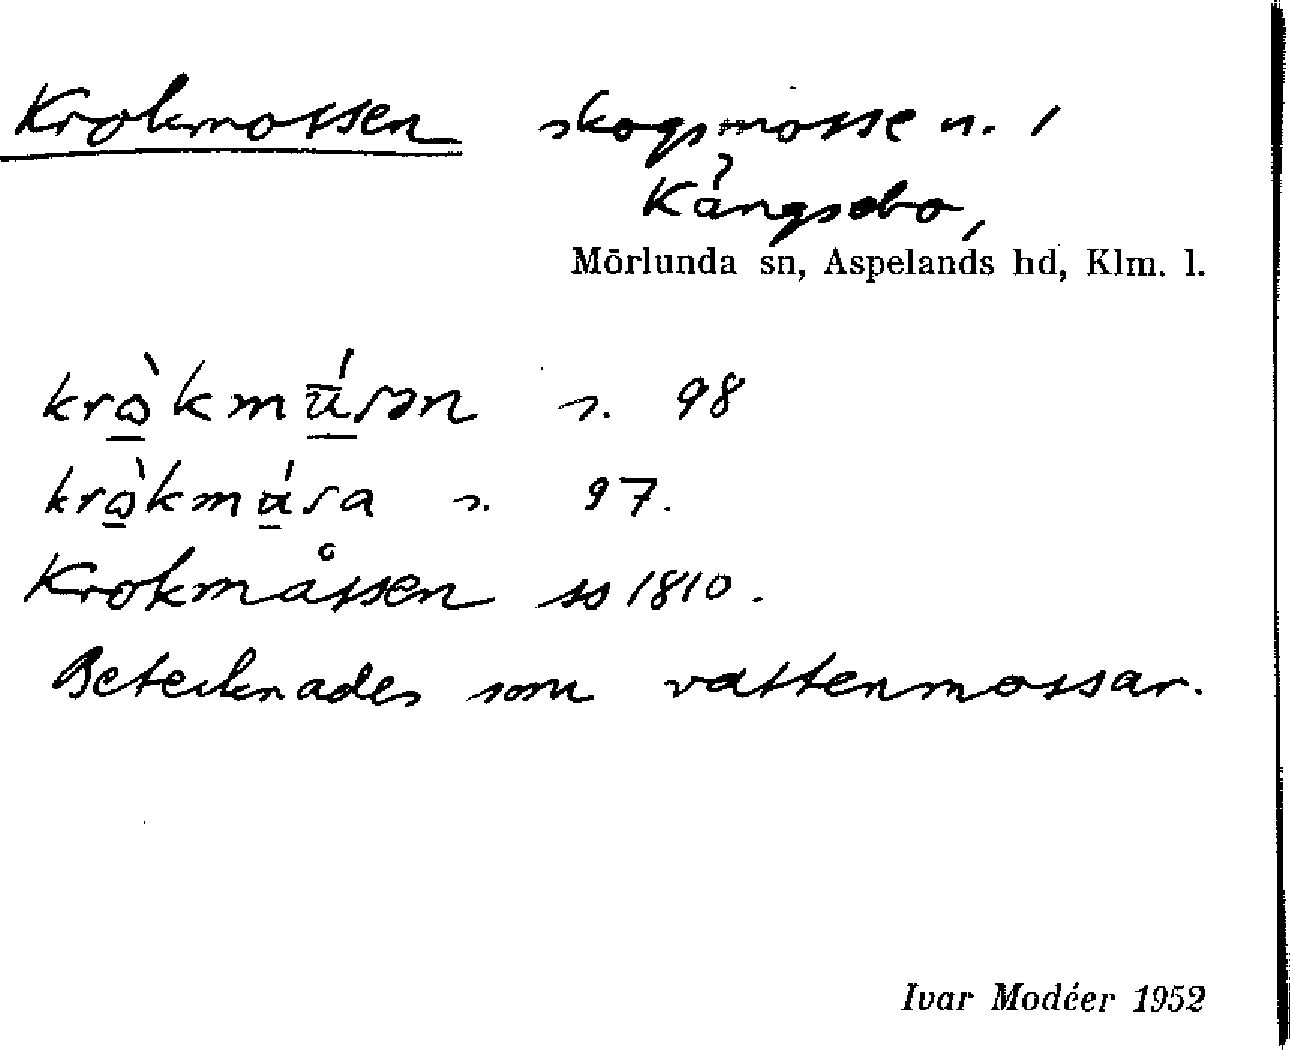 Krokmossen skogsmosse n. 1
Kångsebo,
Mörlunda sn, Aspelands hd, Klm. l.
krὼ̲kmū̲́sən s. 98
krὼ̲kmú̲sa s. 97.
Krokmåssen ss 1810.
Betecknades som vattenmossar.
Ivar Modéer 1952